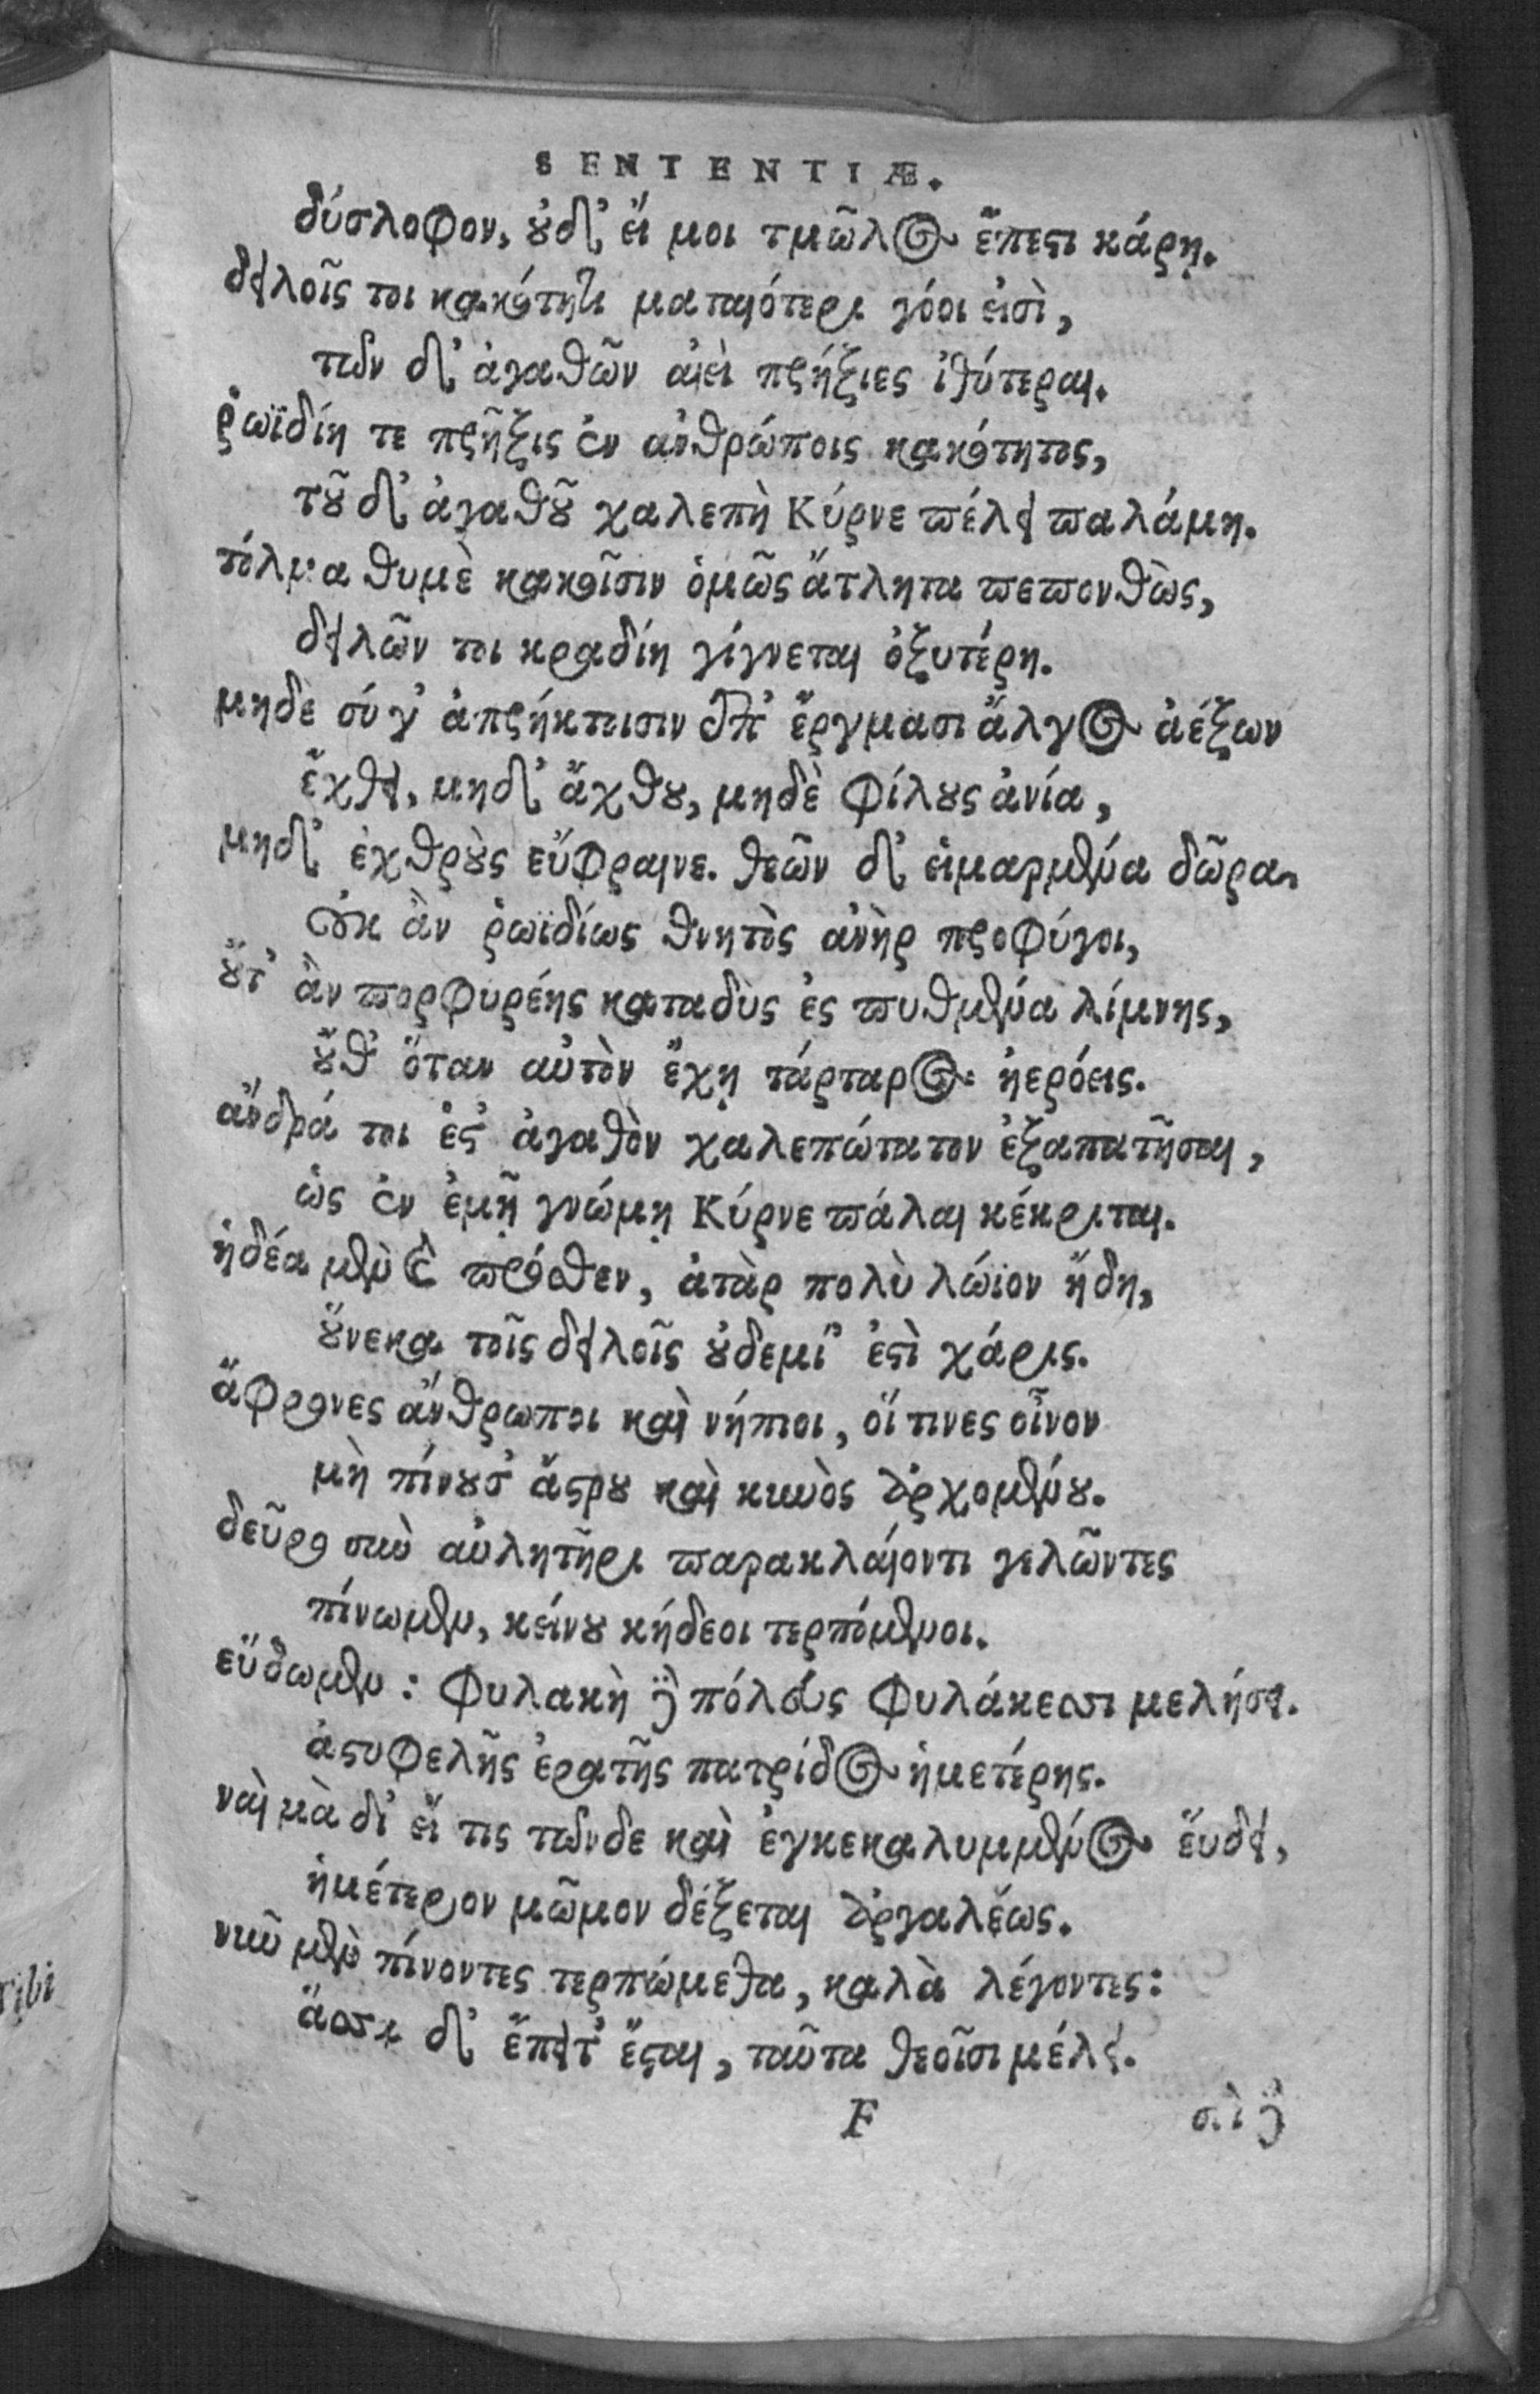 SENTENTIÆ.
δύσλοφον, οὐδ' εἴ μοι τμῶλος ἔπεστι κάρῃ.
δειλοῖς τοι κακότητι ματαιότεροι γόοι εἰσὶ,
τῶν δ' ἀγαθῶν αἰεὶ πρήξιες ἰθύτεραι.
ῥωϊδίη τε πρῆξις ἐν ἀνθρώποις κακότητος,
τοῦ δ' ἀγαθοῦ χαλεπὴ Κύρνε πέλει παλάμη.
τόλμα θυμὲ κακοῖσιν ὁμῶς ἄτλητα πεπονθὼς,
δειλῶν τοι κραδίη γίγνεται ὀξυτέρη.
μηδὲ σύ γ' ἀπρήκτοισιν ἐπ' ἔργμασι ἄλγος ἀέξων
ἔχθει, μηδ' ἄχθου, μηδὲ φίλους ἀνία,
μηδ' ἐχθροὺς εὔφραινε. θεῶν δ' εἱμαρμένα δῶρα
οὐκ ἂν ῥωϊδίως θνητὸς ἀνὴρ προφύγοι,
οὔτ' ἂν πορφυρέης καταδὺς ἐς πυθμένα λίμνης,
οὔθ' ὅταν αὐτὸν ἔχῃ τάρταρος ἠερόεις.
ἄνδρά τοι ἐστ' ἀγαθὸν χαλεπώτατον ἐξαπατῆσαι,
ὡς ἐν ἐμῇ γνώμῃ Κύρνε πάλαι κέκριται.
ᾐδέα μὲν καὶ πρόσθεν, ἀτὰρ πολὺ λώϊον ἤδη,
οὕνεκα τοῖς δειλοῖς οὐδεμί' ἐστὶ χάρις.
ἄφρονες ἄνθρωποι καὶ νήπιοι, οἵ τινες οἶνον
μὴ πίνουσ' ἄστρου καὶ κυνὸς ἀρχομένου.
δεῦρο σὺν αὐλητῆρι παρακλάιοντι γελῶντες
πίνωμεν, κείνου κήδεσι τερπόμενοι.
εὕδωμεν: φυλακὴ δὲ πόλεως φυλάκεσσι μελήσει.
ἀστυφελῆς ἐρατῆς πατρίδος ἡμετέρης.
ναὶ μὰ δί' εἴ τις τῶνδε καὶ ἐγκεκαλυμμένος εὕδει,
ἡμέτερον μῶμον δέξεται ἀργαλέως.
νῦν μὲν πίνοντες τερπώμεθα, καλὰ λέγοντες:
ἅσσα δ' ἔπειτ' ἔσται, ταῦτα θεοῖσι μέλει.
F σοὶ δὲ